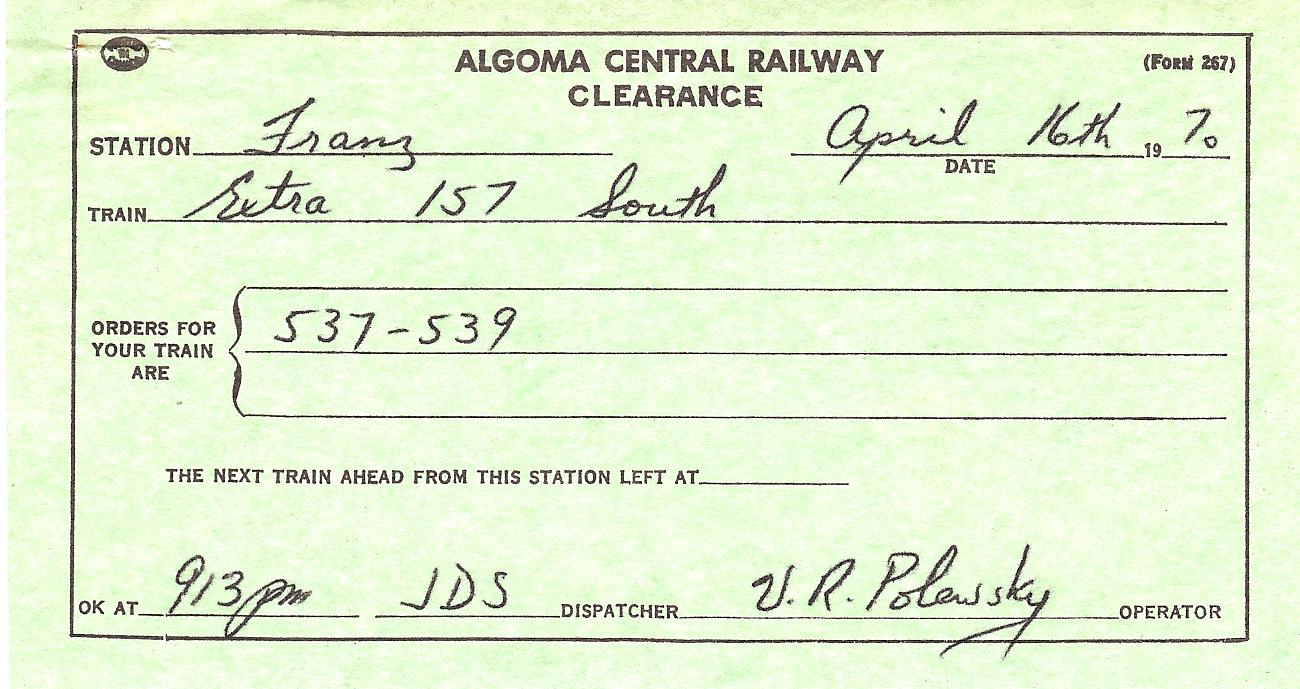 ALGOMA CENTRAL RAILWAY (FORM 267)
CLEARANCE
STATION Franz April 16th 19 70
DATE
TRAIN Extra 157 South
ORDERS FOR YOUR TRAIN ARE 537-539
THE NEXT TRAIN AHEAD FROM THIS STATION LEFT AT
OK AT 913pm JDS DISPATCHER V. R. Polewsky OPERATOR